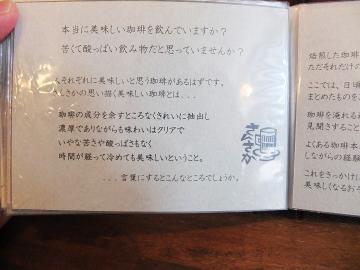 本当に美味しい珈琲を飲んでいますか？
苦くて酸っぱい飲み物だと思っていませんか？
それぞれに美味しいと思う珈琲があるはずです。
さかの思い描く美味しい珈琲とは...
珈琲の成分を余すところなくきれいに抽出し
濃厚でありながらも味わいはクリアで
いやな苦さや酸っぱさもなく
時間が経って冷めても美味しいということ。
...言葉にするとこんなところでしょうか。
焙煎した珈琲
ただそれだけの
ここでは、日頃
まとめたものを
珈琲を淹れる
見聞きするこ
よくある珈琲本
しながらの経験
これをきっかけに
美味しくなるお